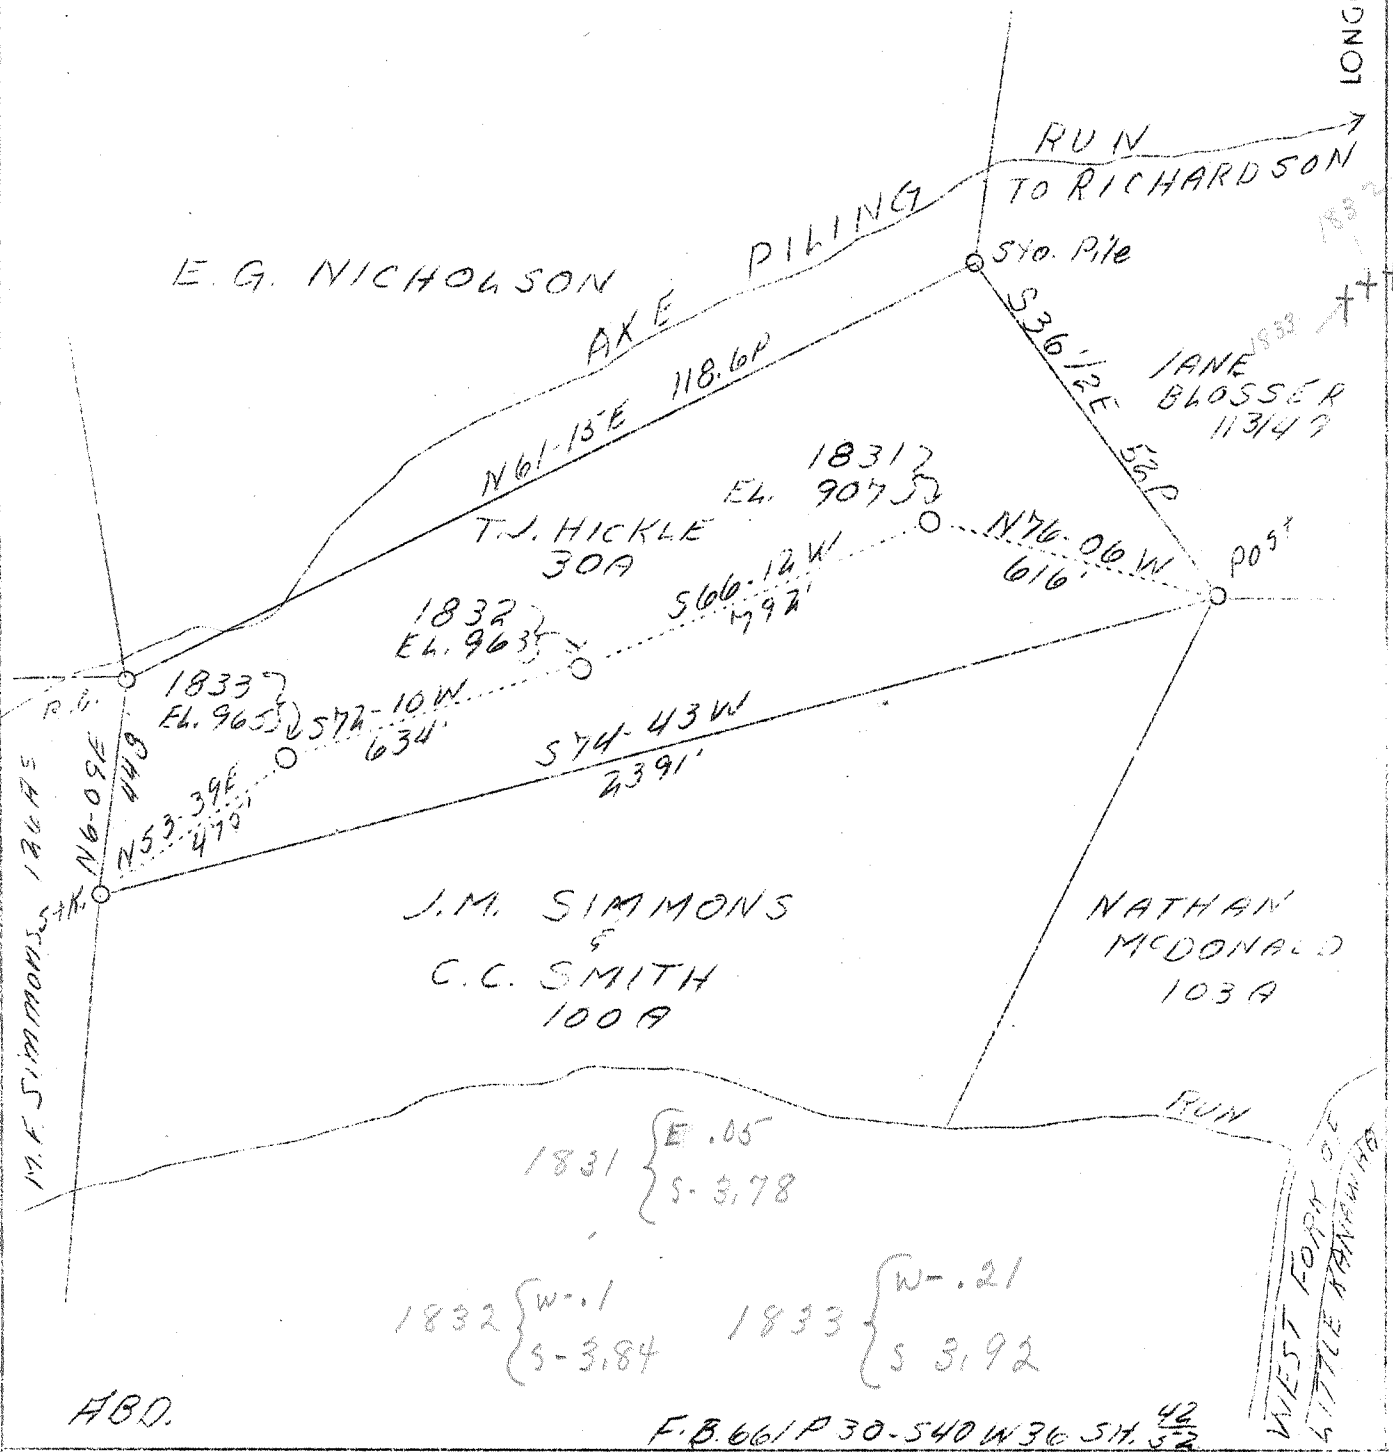 LONG
RUN
TO RICHARDSON
AXE PILING
Sto. Pile
E. G. NICHOLSON
1832
1833
S36 1/2E 52P
JANE
BLOSSER
N61-15E 118.6P
1831
EL. 907
T.J. HICKLE
30A
N76-06W
616'
Post
S66-12W
792'
1832
EL. 963
1833
EL. 965
S72-10W
634'
S74-43W
2391'
N6-09E
449
N53-39E
Stk.
M.F. SIMMONS
J.M. SIMMONS
&
C.C. SMITH
100A
NATHAN
McDONALD
103A
RUN
WEST FORK OF
LITTLE KANAWHA
1831 { E .05
S-3.78
1832 { W-.1
S-3.84
1833 { W-.21
S 3.92
ABD.
F.B. 661 P 30-S40 W36 SH. 42/52